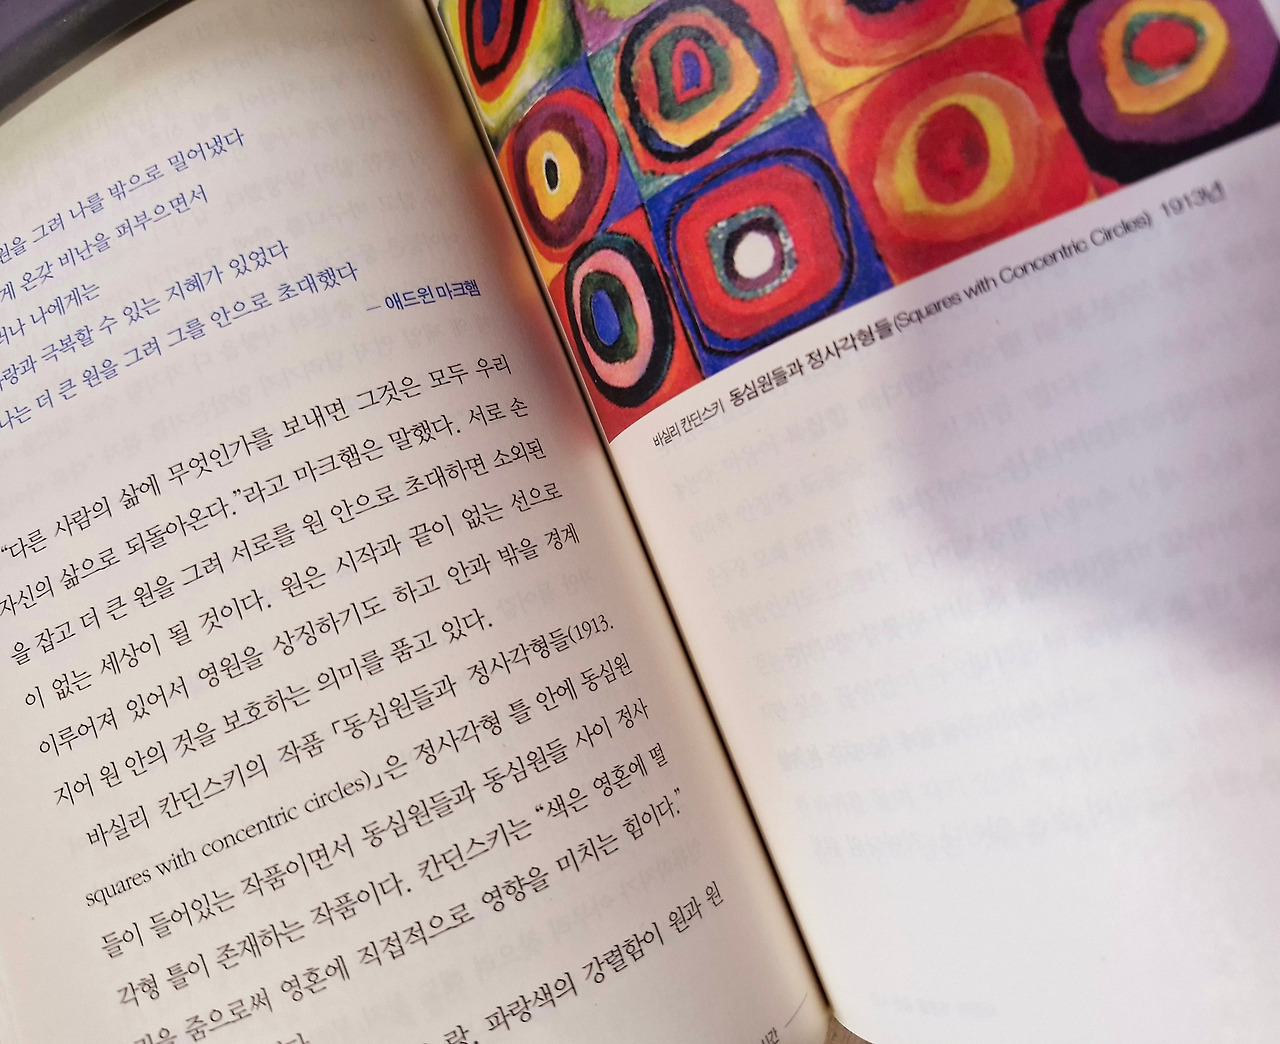 원을 그려 나를 밖으로 밀어냈다
게 온갖 비난을 퍼부으면서
나 나에게는
랑과 극복할 수 있는 지혜가 있었다
나는 더 큰 원을 그려 그를 안으로 초대했다
– 애드윈 마크햄
“다른 사람의 삶에 무엇인가를 보내면 그것은 모두 우리
자신의 삶으로 되돌아온다.”라고 마크햄은 말했다. 서로 손
을 잡고 더 큰 원을 그려 서로를 원 안으로 초대하면 소외된
이 없는 세상이 될 것이다. 원은 시작과 끝이 없는 선으로
이루어져 있어서 영원을 상징하기도 하고 안과 밖을 경계
지어 원 안의 것을 보호하는 의미를 품고 있다.
바실리 칸딘스키의 작품 「동심원들과 정사각형들(1913.
squares with concentric circles)」은 정사각형 틀 안에 동심원
들이 들어있는 작품이면서 동심원들과 동심원들 사이 정사
각형 틀이 존재하는 작품이다. 칸딘스키는 “색은 영혼에 떨
림을 줌으로써 영혼에 직접적으로 영향을 미치는 힘이다.”
다.
랑, 파랑색의 강렬함이 원과 원
시간
바실리 칸딘스키 동심원들과 정사각형들(Squares with Concentric Circles) 1913년